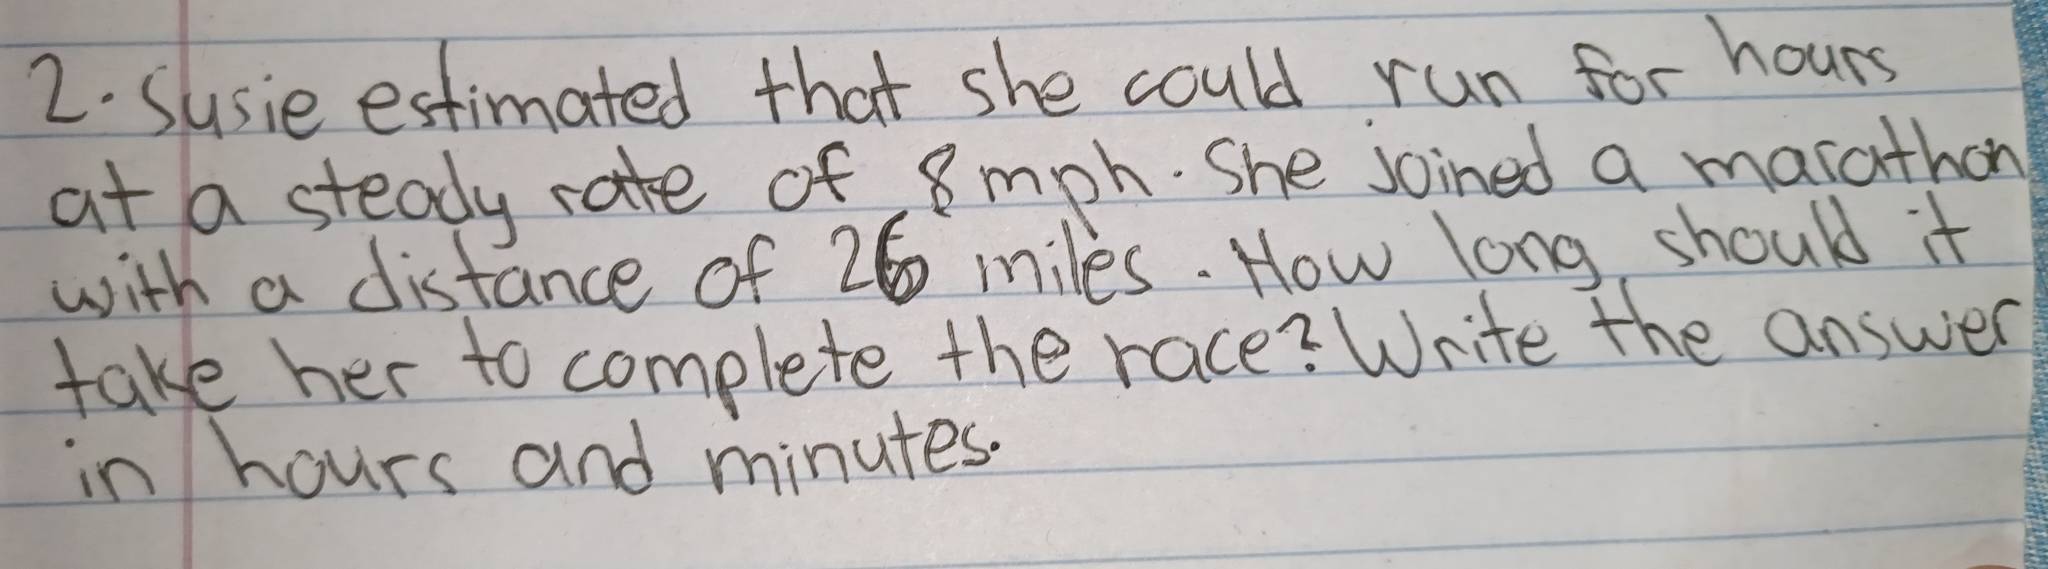 2. Susie estimated that she could run for hours
at a steady rate of 8 mph. She joined a marathon
with a distance of 26 miles. How long should it
take her to complete the race? Write the answer
in hours and minutes.